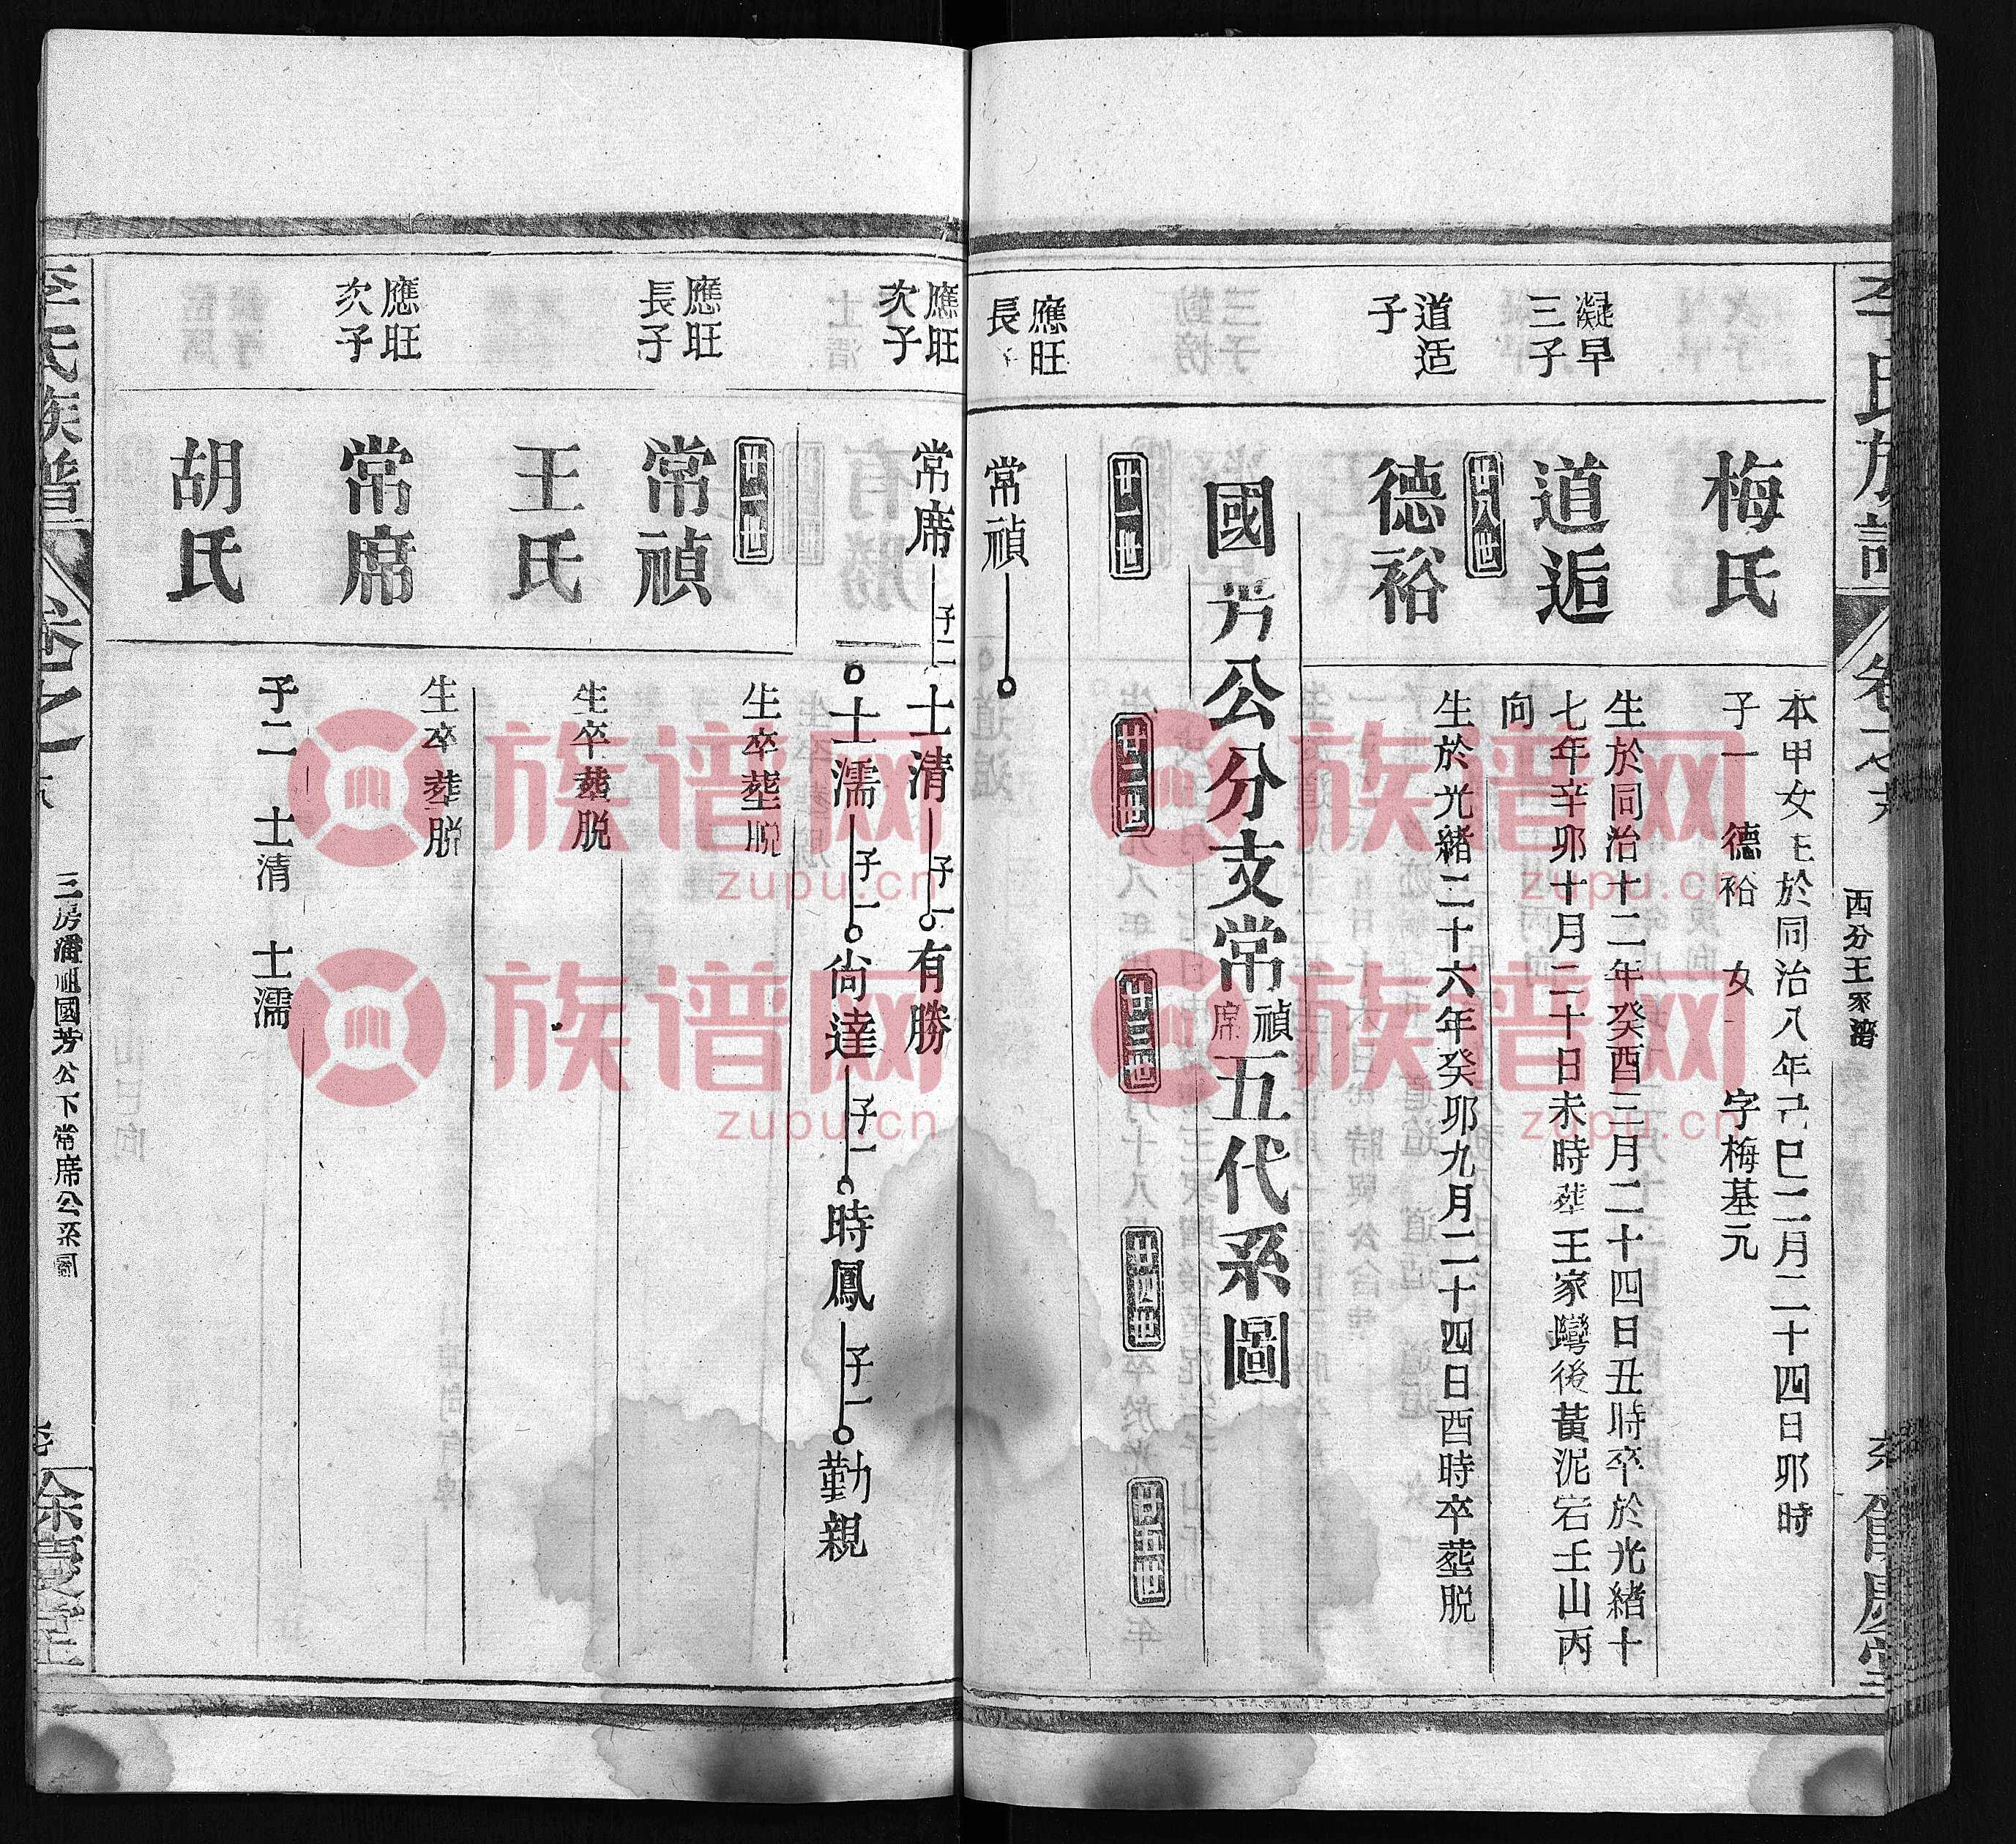 李氏族譜
卷之一
西分王家灣
余慶堂
梅氏
本甲女生於同治八年己巳二月二十四日卯時
子一 德裕 女一 字梅基元
凝早
三子
道逅
生於同治十二年癸酉三月二十四日丑時卒於光緒十
七年辛卯十月二十日未時葬王家灣後黃泥宕壬山丙
向
廿八世
道适
子
德裕
生於光緒二十六年癸卯九月二十四日酉時卒葬脱
國芳公分支常禎席五代系圖
廿一世
廿二世
廿三世
廿四世
廿五世
應旺
長子
常禎
應旺
次子
常席 子二 士清 子一 有勝
士濡 子一 尚達 子一 時鳳 子一 勤親
廿一世
應旺
長子
常禎
生卒塟脱
王氏
生卒葬脱
應旺
次子
常席
生卒葬脱
胡氏
子二 士清 士濡
李氏族譜
卷之一
三房潘祖國芳公下常席公系圖
余慶堂
族谱网
zupu.cn
族谱网
zupu.cn
族谱网
zupu.cn
族谱网
zupu.cn